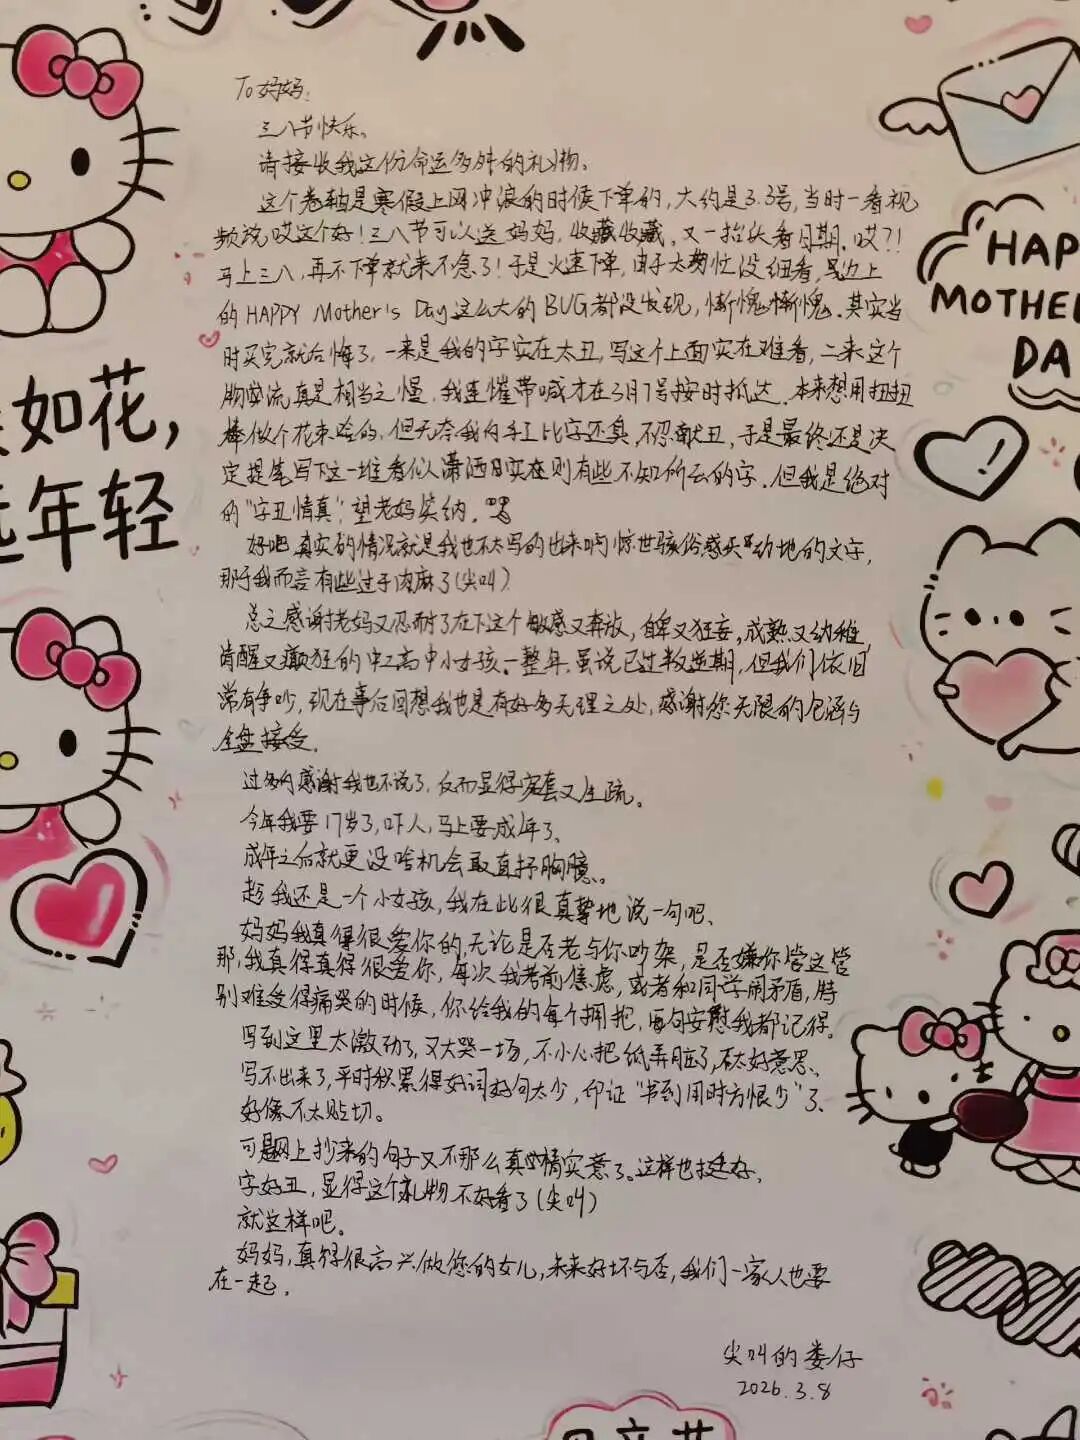 To妈妈:
三八节快乐。
请接收我这份命运多舛的礼物、
这个卷轴是寒假上网冲浪的时候下单的,大约是3.3号,当时一看视
频说哎这个好!三八节可以送妈妈,收藏收藏,又一抬头看日期,哎?!
马上三八,再不下单就来不急了!于是火速下单,由于太匆忙没细看,边上
的HAPPY Mother's Day这么大的BUG都没发现,惭愧惭愧.其实当
时买完就后悔了,一来是我的字实在太丑,写这个上面实在难看,二来这个
物流真是相当之慢,我连催带喊才在3月7号按时抵达.本来想用扭扭
棒做个花束啥的,但无奈我的手工比字还臭,不忍献丑,于是最终还是决
定提笔写下这一堆看似潇洒实则有些不知所云的字.但我是绝对
的"字丑情真",望老妈笑纳,
好吧真实的情况就是我也不太写的出来啊惊世骇俗感天动地的文字,
那于我而言有些过于肉麻了(尖叫)
总之感谢老妈又忍耐了在下这个敏感又奔放,自卑又狂妄,成熟又幼稚,
清醒又癫狂的高中小女孩一整年.虽说已过叛逆期,但我们依旧
常有争吵,现在事后回想我也是有好多无理之处,感谢您无限的包涵与
全盘接受.
过多的感谢我也不说了,反而显得客套又生疏。
今年我要17岁了,吓人,马上要成年了、
成年之后就更没啥机会敢直抒胸臆、。
趁我还是一个小女孩,我在此很真挚地说一句吧、
妈妈我真得很爱你的,无论是否老与你吵架,是否嫌你管这管
那,我真得真得很爱你,每次我考前焦虑,或者和同学闹矛盾,特
别难受得痛哭的时候,你给我的每个拥抱,每句安慰我都记得。
写到这里太激动了,又大哭一场,不小心把纸弄脏了,不太好意思、
写不出来了,平时积累得好词好句太少,印证"书到用时方恨少"了、
好像不太贴切。
可是网上抄来的句子又不那么真情实意了。这样也挺好,
字好丑,显得这个礼物不好看了(尖叫)
就这样吧。
妈妈,真得很高兴做您的女儿,未来好坏与否,我们一家人也要
在一起.
尖叫的娄仔
2026.3.8
如花,
年轻
HAPP
MOTHER
DA